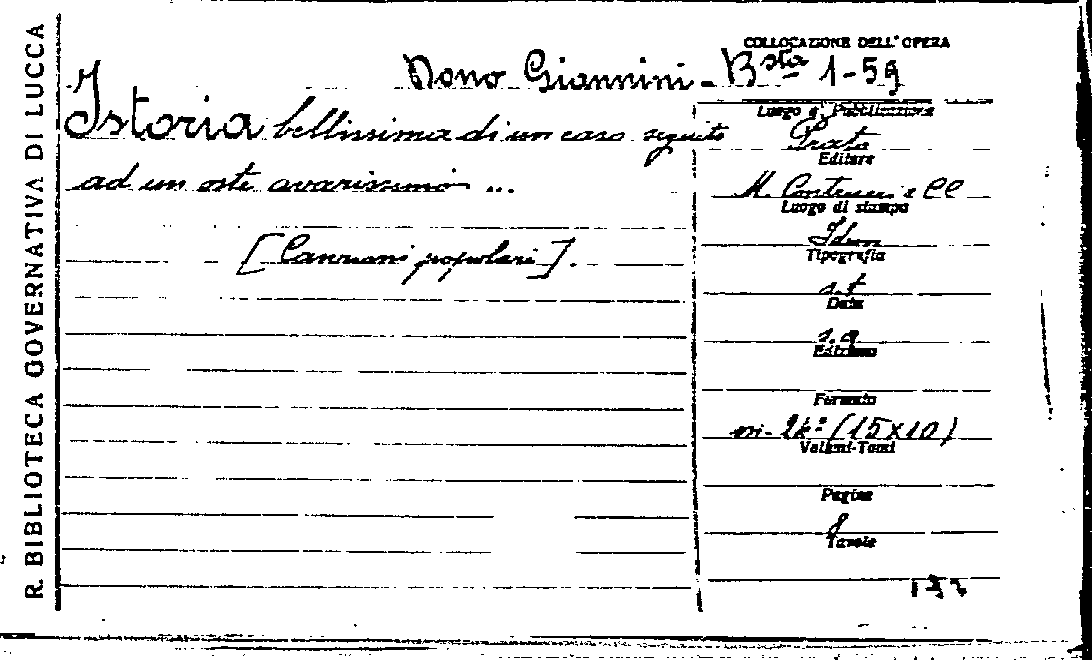 R. BIBLIOTECA GOVERNATIVA DI LUCCA
COLLOCAZIONE DELL' OPERA
Dono Giannini - Bsta 1-59
Istoria bellissima di un caso seguito
ad un oste avarissimo ...
[Canzoni popolari].
Luogo di Pubblicazione
Prato
Editore
M. Contrucci e CC
Luogo di stampa
Idem
Tipografia
s.t
Data
s.a
Edizione
Formato
in-24º (15x10)
Volumi-Tomi
Pagine
8
Tavole